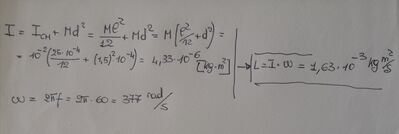 I = I_CM + Md² = Mℓ²/12 + Md² = M(ℓ²/12 + d²) =
= 10⁻²(25·10⁻⁴/12 + (1,5)²·10⁻⁴) = 4,33·10⁻⁶ [kg·m²]
→ L = I·ω = 1,63·10⁻³ kg m²/s
ω = 2πf = 2π·60 = 377 rad/s